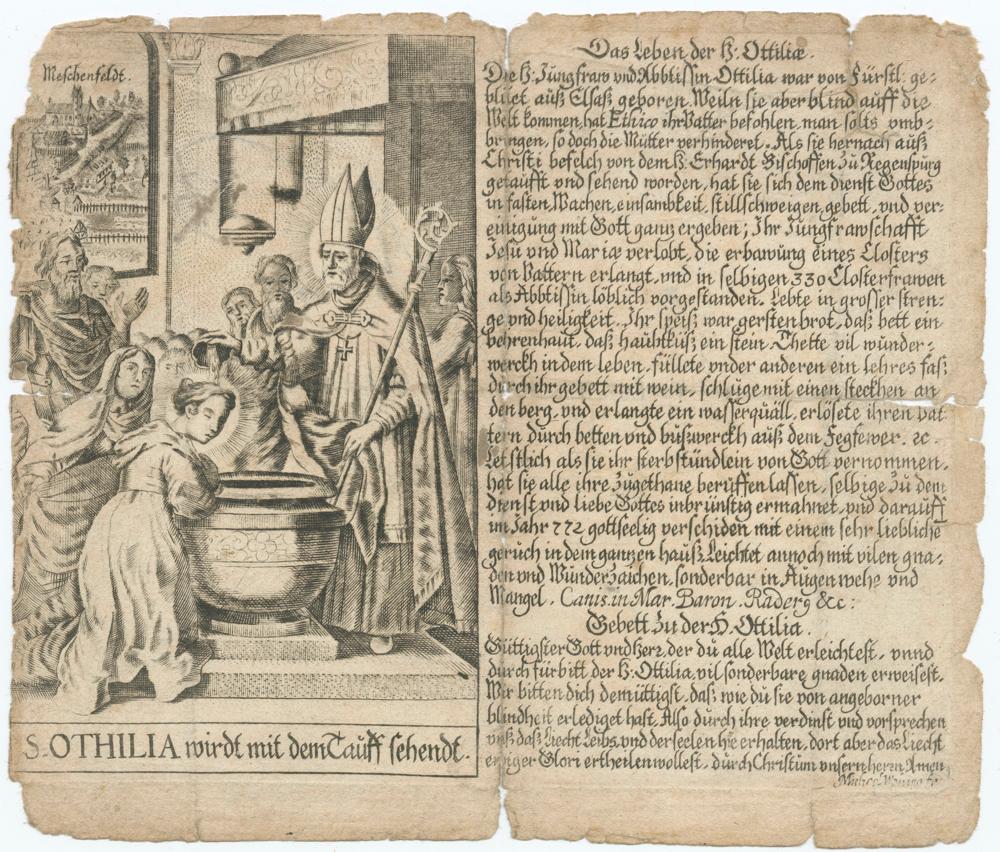 Meschenfeldt.
S. OTHILIA wirdt mit dem Tauff sehendt.
Das Leben der H: Ottiliæ.
Die H: Jungfraw vnd Abbtissin Ottilia war von Fürstl: ge-
blüet auß Elsaß geboren. Weiln sie aber blind auff die
Welt kommen, hat Ethico ihr Vatter befohlen, man solts vmb-
bringen, so doch die Mütter verhinderet. Als sie hernach auß
Christi befelch von dem H. Erhardt Bischoffen zu Regenspurg
getaufft vnd sehend worden, hat sie sich dem dienst Gottes
in fasten, Wachen, einsambkeit, stillschweigen, gebett, vnd ver-
einigung mit Gott ganz ergeben; Ihr Jungfrawschafft
Jesu vnd Mariæ verlobt, die erbawüng eines Closters
von Vattern erlangt, vnd in selbigen 330 Closterfrawen
als Abbtissin löblich vorgestanden. Lebte in grosser stren-
ge vnd heiligkeit. Ihr speiß war gerstenbrot, daß bett ein
behrenhaut, daß haubtküß ein stein. Thette vil wunder-
werckh in dem leben, füllete vnder anderen ein lehres faß
durch ihr gebett mit wein, schluge mit einen steckhen an
den berg, vnd erlangte ein wasserquäll, erlösete ihren vat
tern durch betten vnd bußwerckh auß dem Fegfewer. ec.
Letstlich als sie ihr sterbstündlein von Gott vernommen,
hat sie alle ihre zügethane berüffen lassen, selbige zu dem
dienst vnd liebe Gottes inbrünstig ermahnet, vnd darauff
im Jahr 772 gottseelig verschiden mit einem sehr liebliche
geruch in dem ganzen hauß Leichtet annoch mit vilen gna-
den vnd Wünderzaichen, sonderbar in Augenwehe vnd
Mangel. Canis. in Mar. Baron. Raderg &c:
Gebett zu der H. Ottilia.
Güttigster Gott vnd herr, der du alle Welt erleichtest, vnnd
durch fürbitt der H: Ottilia, vil sonderbare gnaden erweisest.
Wir bitten dich demüttigst, daß wie du sie von angeborner
blindheit erlediget hast, Also durch ihre verdinst vnd vorsprechen
vnß daß Liecht Leibs, vnd der seelen hie erhalten, dort aber das Liecht
ewiger Glori ertheilen wollest, durch Christum vnsern herrn Amen